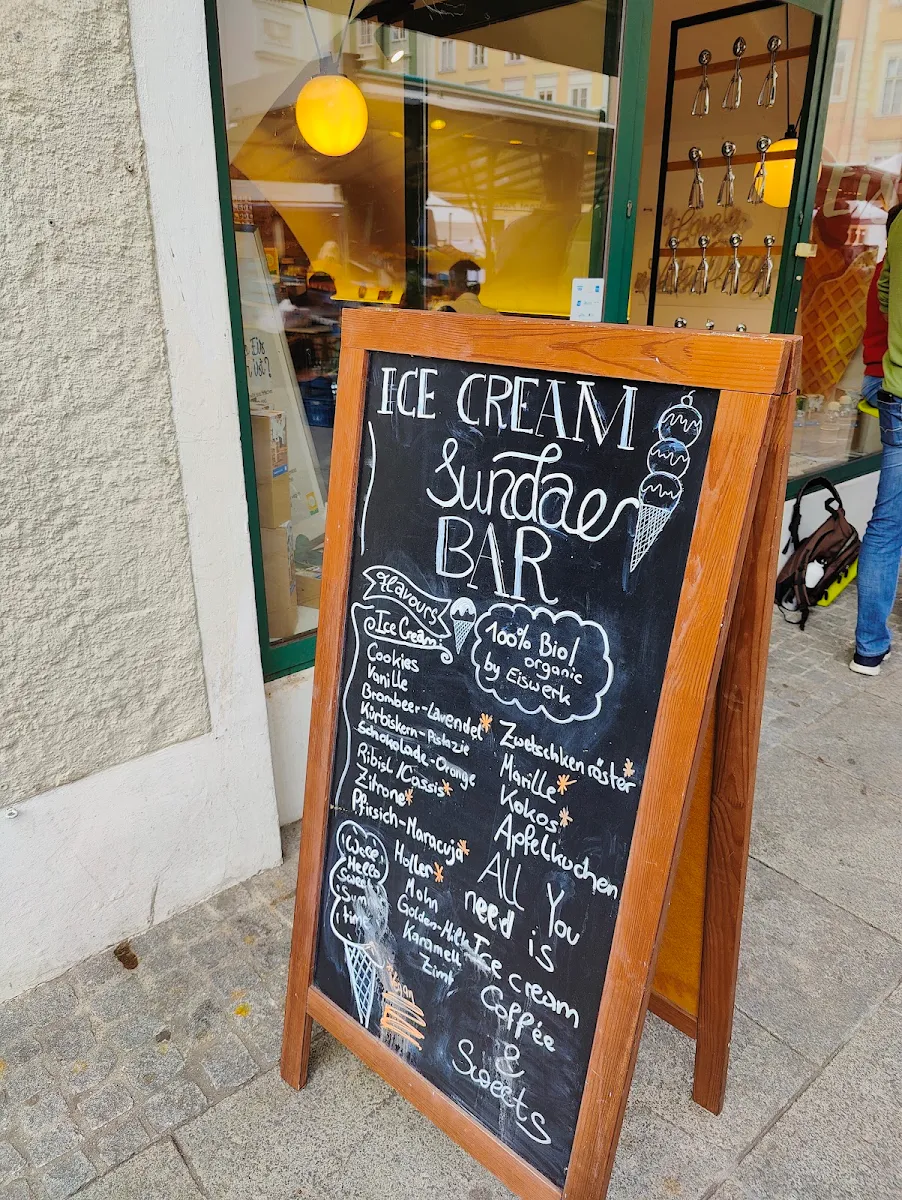 ICE CREAM
Sundae
BAR
Flavours
Ice Cream
100% Bio!
organic
by Eiswerk
Cookies
Vanille
Brombeer-Lavendel*
Kürbiskern-Pistazie
Schokolade-Orange
Ribisl/Cassis*
Zitrone*
Pfirsich-Maracuja*
Holler*
Mohn
Golden-Milk
Karamell
Zimt
Zwetschkenröster*
Marille*
Kokos*
Apfelkuchen
All You
need is
Ice cream
Coffee
&
Sweets
Hello
time